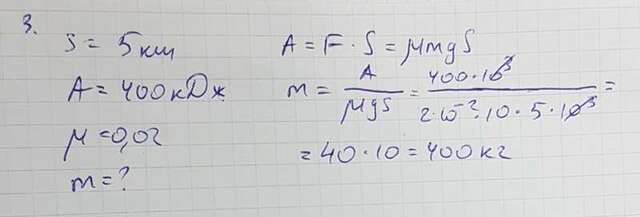 3.
S = 5 км
A = 400 кДж
μ = 0,02
m = ?
A = F · S = μmgS
m = A / μgS = 400·10³ / 2·10⁻²·10·5·10³ =
= 40·10 = 400 кг